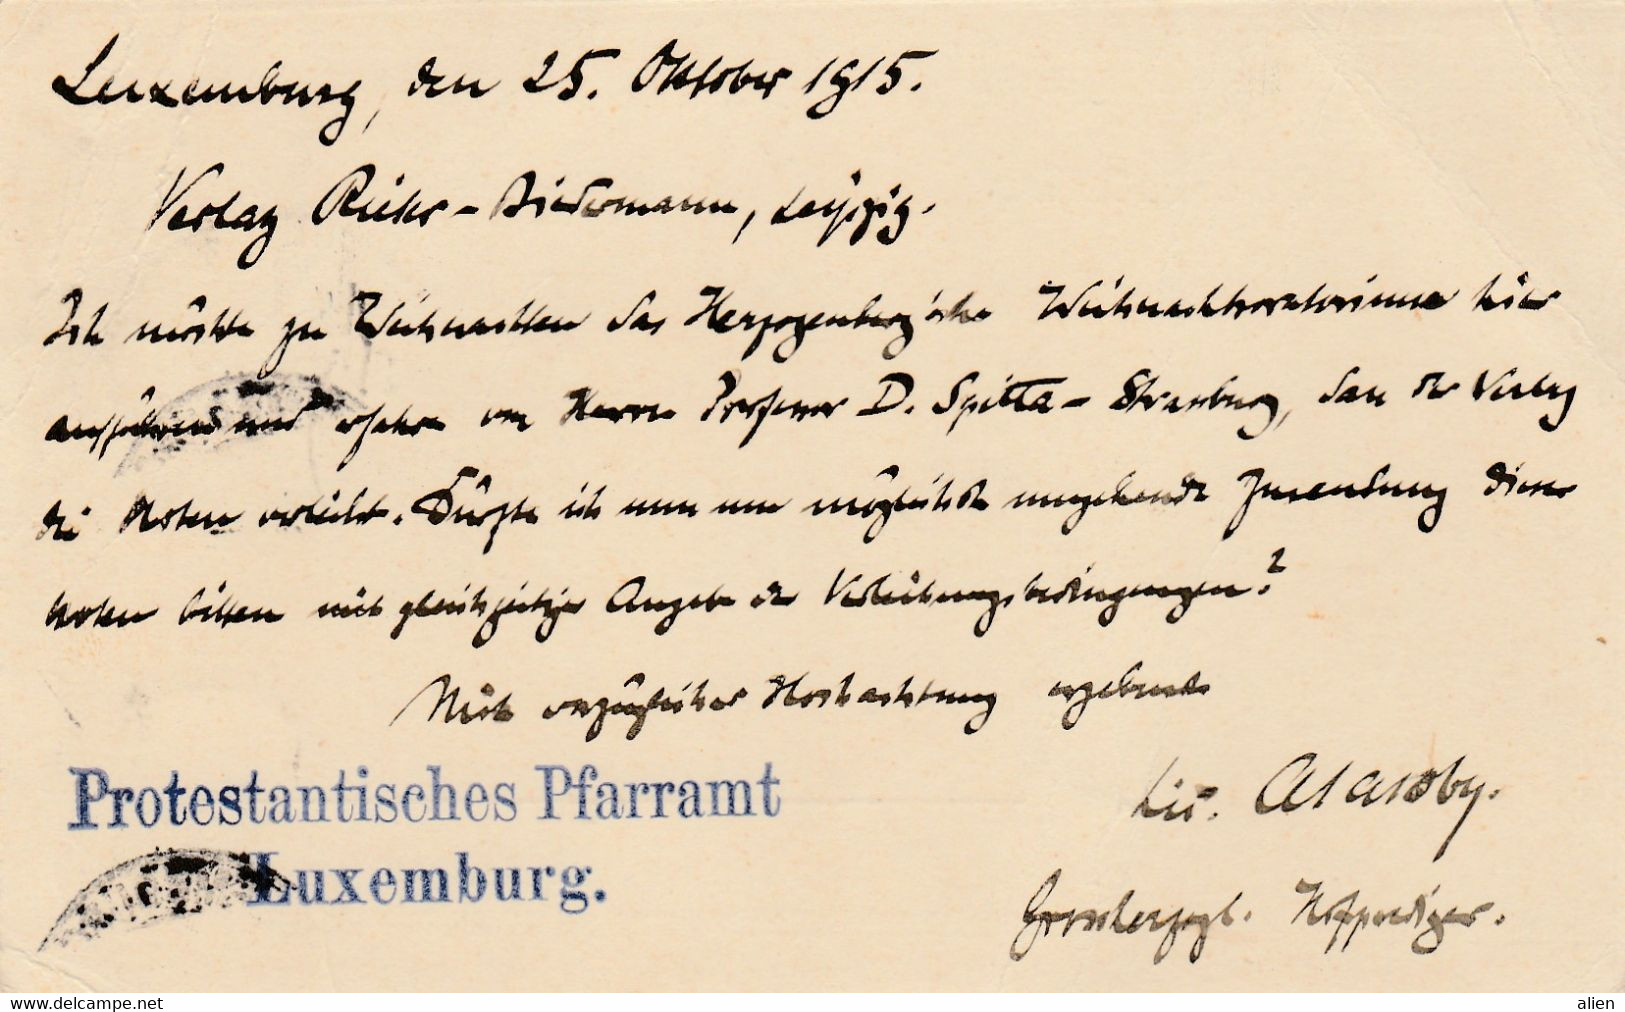 Luxemburg, den 25. Oktober 1915.
Verlag Rieter-Biedermann, Leipzig.
Ich möchte zu Weihnachten das Herzogenberg'sche Weihnachtsoratorium hier
aufführen und erfahre von Herrn Professor D. Spitta-Strassburg, dass der Verlag
die Noten verleiht. Dürfte ich nun um möglichst umgehende Zusendung dieser
Noten bitten mit gleichzeitiger Angabe der Verleihungsbedingungen?
Mit vorzüglicher Hochachtung ergebenst
Lic.
Grossherzogl. Hofprediger.
Protestantisches Pfarramt
Luxemburg.
www.delcampe.net
alien